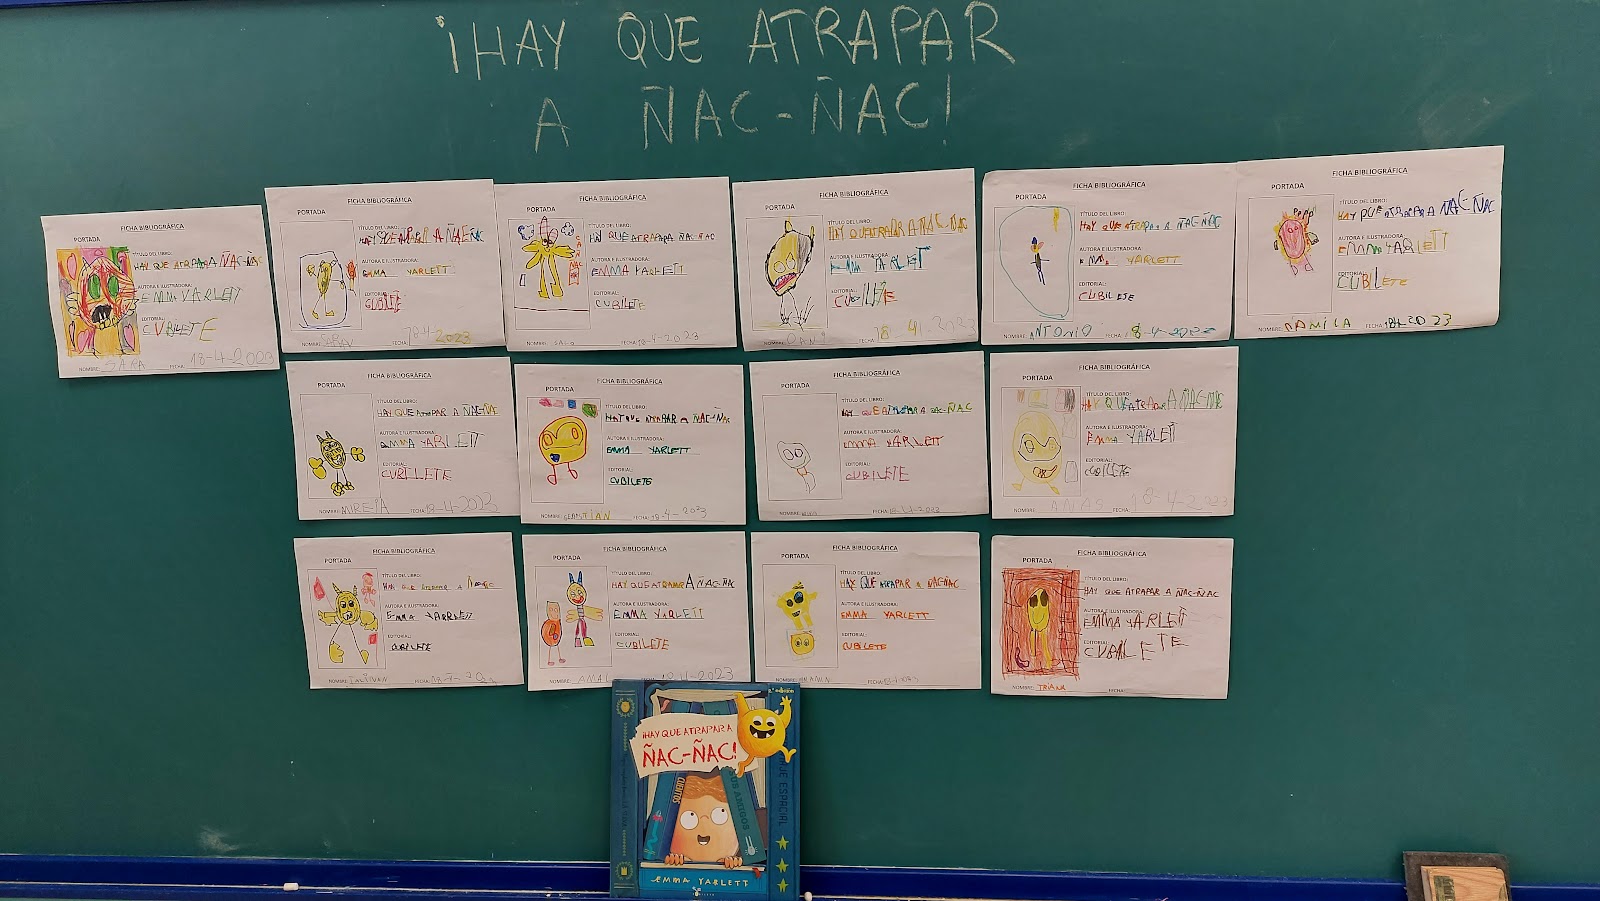 ¡HAY QUE ATRAPAR
A ÑAC-ÑAC!
FICHA BIBLIOGRÁFICA
PORTADA
HAY QUE ATRAPAR A ÑAC-ÑAC
EMMA YARLETT
EDITORIAL:
CUBILETE
NOMBRE: SARA FECHA: 18-4-2023
FICHA BIBLIOGRÁFICA
PORTADA
TÍTULO DEL LIBRO:
HAY QUE ATRAPAR A ÑAC-ÑAC
AUTORA E ILUSTRADORA:
EMMA YARLETT
EDITORIAL:
NOMBRE: FECHA: 2023
FICHA BIBLIOGRÁFICA
PORTADA
TÍTULO DEL LIBRO:
HAY QUE ATRAPAR A ÑAC-ÑAC
AUTORA E ILUSTRADORA:
EMMA YARLETT
EDITORIAL:
CUBILETE
NOMBRE: FECHA: 18-4-2023
FICHA BIBLIOGRÁFICA
PORTADA
TÍTULO DEL LIBRO:
HAY QUE ATRAPAR A ÑAC-ÑAC
AUTORA E ILUSTRADORA:
YARLETT
EDITORIAL:
CUBILETE
NOMBRE: DANI FECHA: 18-4-2023
FICHA BIBLIOGRÁFICA
PORTADA
TÍTULO DEL LIBRO:
HAY QUE ATRAPAR A ÑAC-ÑAC
AUTORA E ILUSTRADORA:
YARLETT
EDITORIAL:
CUBILETE
NOMBRE: ANTONIO FECHA: 18-4-2023
FICHA BIBLIOGRÁFICA
PORTADA
TÍTULO DEL LIBRO:
HAY QUE ATRAPAR A ÑAC-ÑAC
AUTORA E ILUSTRADORA:
EMMA YARLETT
EDITORIAL:
CUBILETE
NOMBRE: CAMILA FECHA: 2023
FICHA BIBLIOGRÁFICA
PORTADA
TÍTULO DEL LIBRO:
HAY QUE ATRAPAR A ÑAC-ÑAC
AUTORA E ILUSTRADORA:
EMMA YARLETT
EDITORIAL:
CUBILETE
NOMBRE: MIREYA FECHA: 18-4-2023
FICHA BIBLIOGRÁFICA
PORTADA
TÍTULO DEL LIBRO:
HAY QUE ATRAPAR A ÑAC-ÑAC
AUTORA E ILUSTRADORA:
EMMA YARLETT
EDITORIAL:
CUBILETE
NOMBRE: FECHA: 18-4-2023
FICHA BIBLIOGRÁFICA
PORTADA
TÍTULO DEL LIBRO:
HAY QUE ATRAPAR A ÑAC-ÑAC
AUTORA E ILUSTRADORA:
EMMA YARLETT
EDITORIAL:
CUBILETE
NOMBRE: FECHA: 18-4-2023
FICHA BIBLIOGRÁFICA
PORTADA
TÍTULO DEL LIBRO:
HAY QUE ATRAPAR A ÑAC-ÑAC
AUTORA E ILUSTRADORA:
EMMA YARLETT
EDITORIAL:
CUBILETE
NOMBRE: ANAS FECHA: 18-4-2023
FICHA BIBLIOGRÁFICA
PORTADA
TÍTULO DEL LIBRO:
HAY QUE ATRAPAR A
AUTORA E ILUSTRADORA:
EMMA YARRLETT
EDITORIAL:
CUBILETE
NOMBRE: FECHA:
FICHA BIBLIOGRÁFICA
PORTADA
TÍTULO DEL LIBRO:
HAY QUE ATRAPAR A ÑAC-ÑAC
AUTORA E ILUSTRADORA:
EMMA YARLETT
EDITORIAL:
CUBILETE
NOMBRE: AMAL 2023
FICHA BIBLIOGRÁFICA
PORTADA
TÍTULO DEL LIBRO:
HAY QUE ATRAPAR A ÑAC-ÑAC
AUTORA E ILUSTRADORA:
EMMA YARLETT
EDITORIAL:
CUBILETE
FICHA BIBLIOGRÁFICA
PORTADA
TÍTULO DEL LIBRO:
HAY QUE ATRAPAR A ÑAC-ÑAC
AUTORA E ILUSTRADORA:
EMMA YARLETT
EDITORIAL:
NOMBRE: TRIANA FECHA:
2.ª edición
¡HAY QUE ATRAPAR A
ÑAC-ÑAC!
CUENTOS
SUS AMIGOS
VIAJE ESPACIAL
EMMA YARLETT